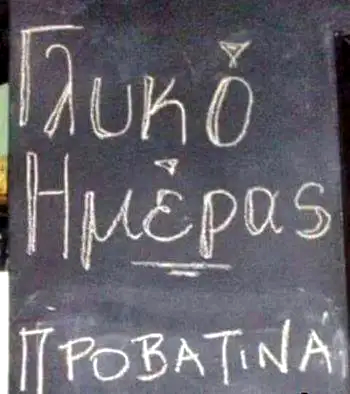 Γλυκό
Ημέρας
ΠΡΟΒΑΤΙΝΑ